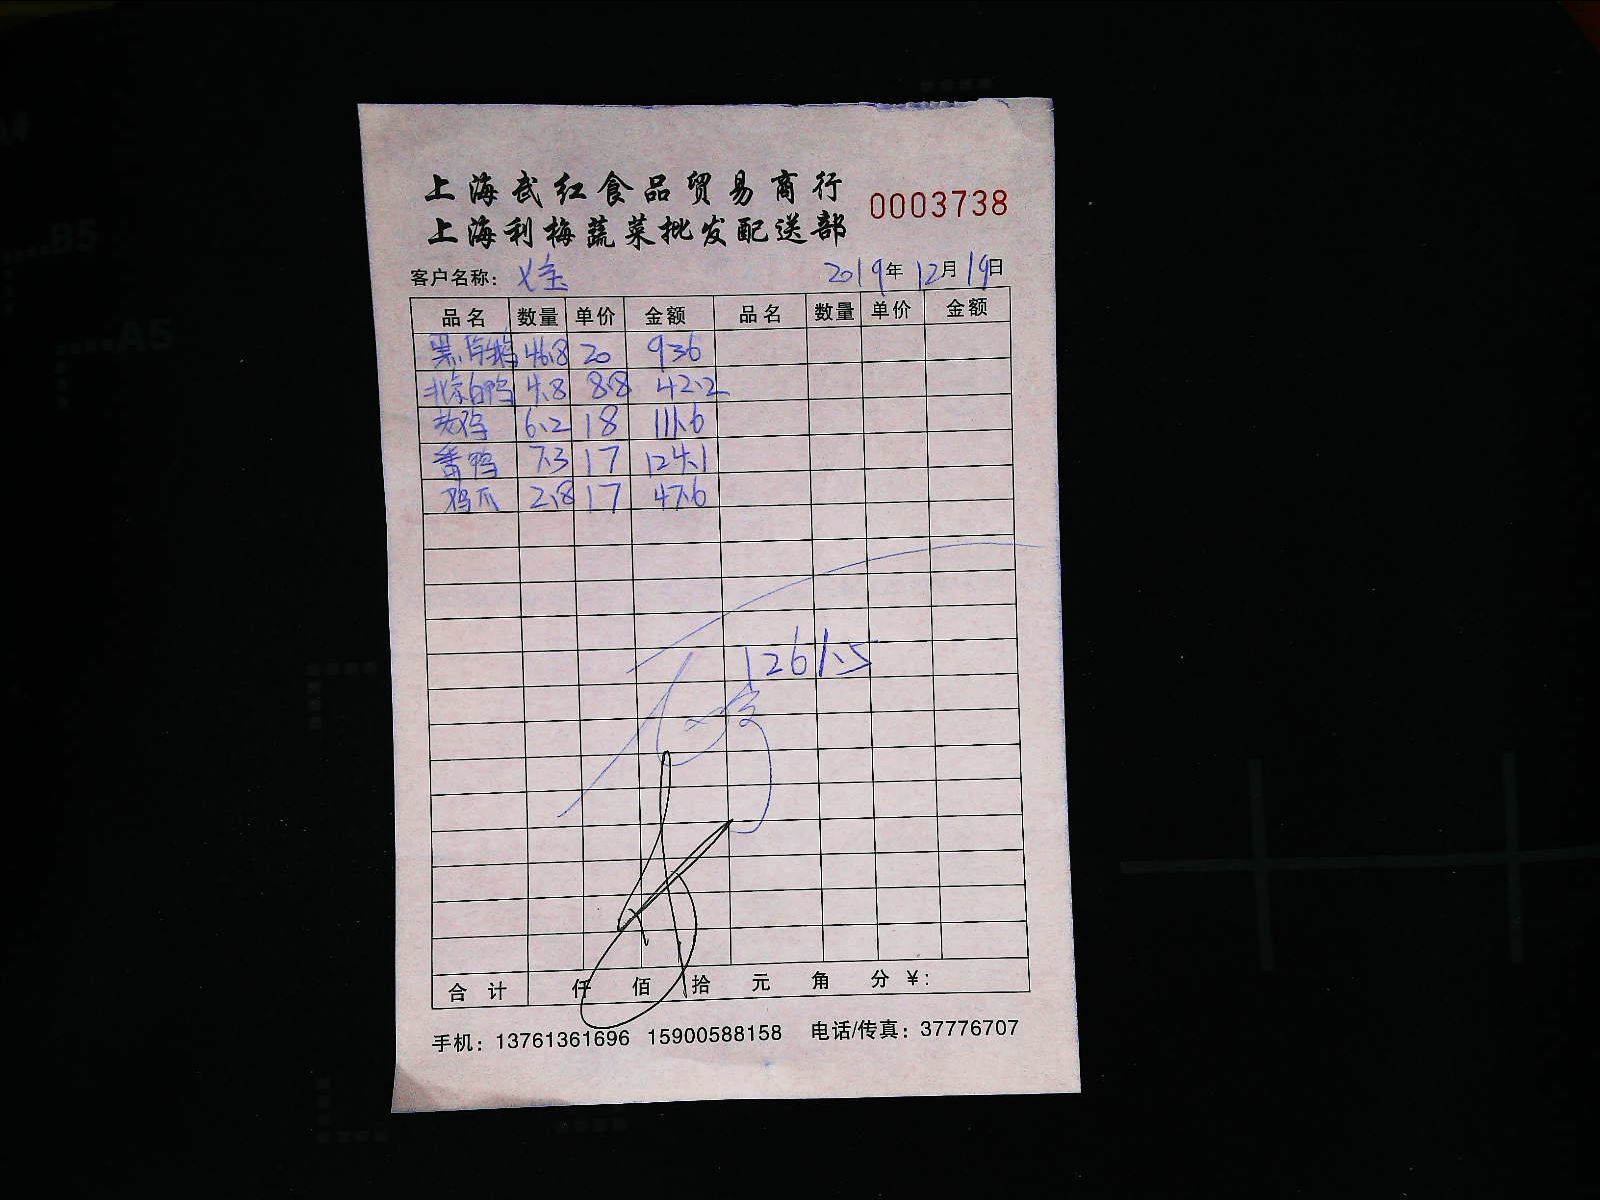 上海武红食品贸易商行
上海利梅蔬菜批发配送部
0003738
客户名称: 2019年12月19日
品名 数量 单价 金额 品名 数量 单价 金额
46.8 20 936
北京白鸭 4.8 8.8 42.2
6.2 18 111.6
番鸭 7.3 17 124.1
鸡爪 2.8 17 47.6
1261.5
合计 仟 佰 拾 元 角 分 ¥:
手机: 13761361696 15900588158 电话/传真: 37776707
B5
A5